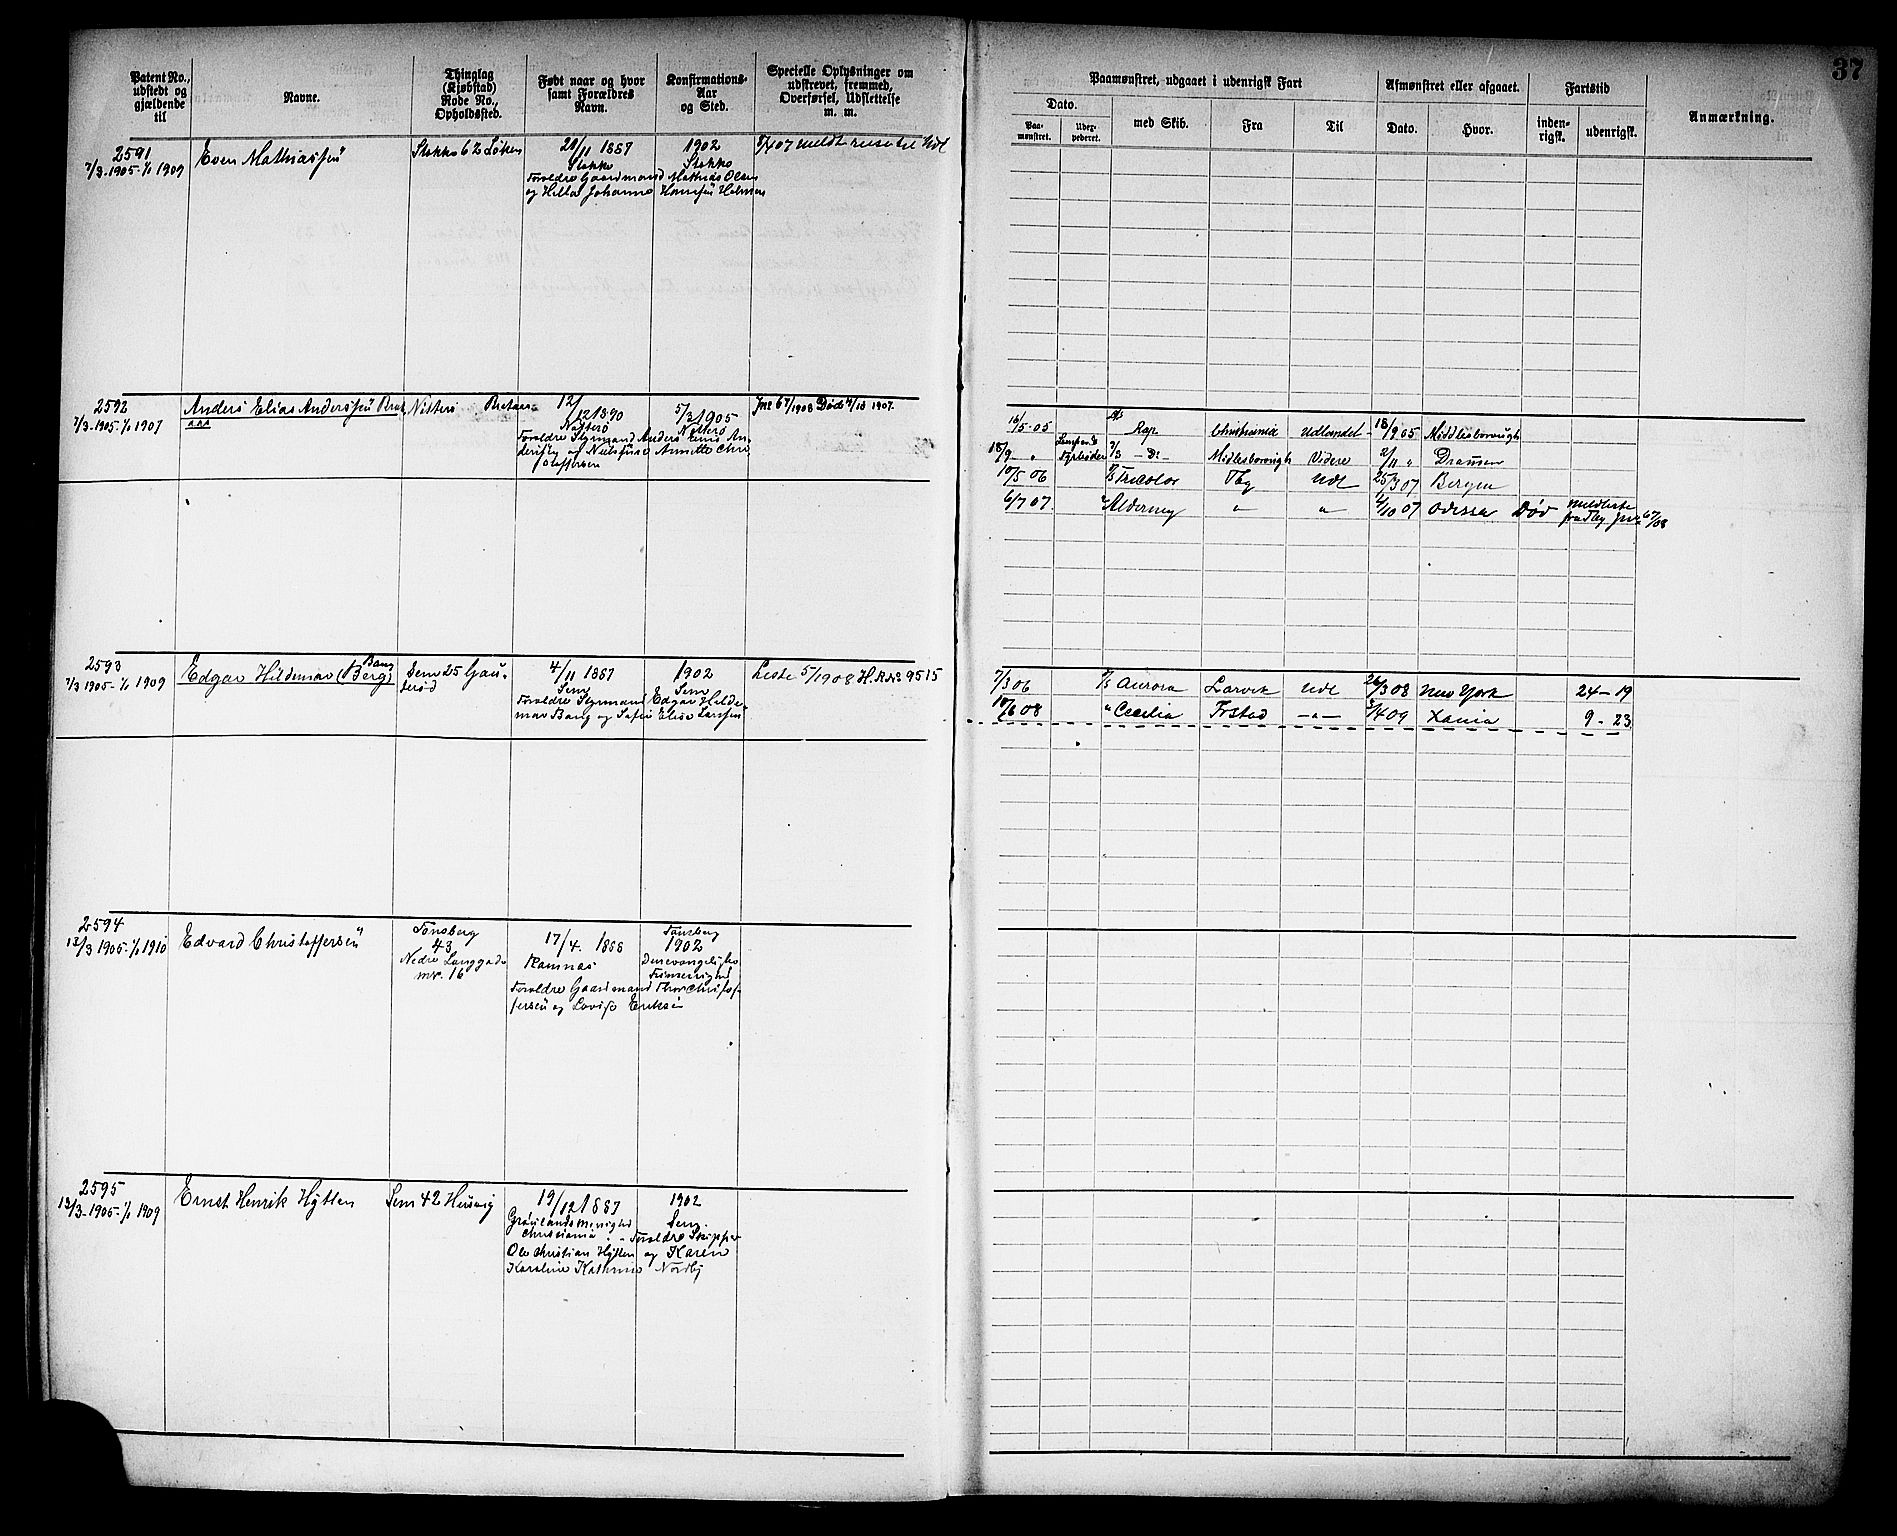 37
Patent No., udstedt og gjældende til
Navne.
Thinglag (Kjøbstad) Rode No., Opholdssted.
Født naar og hvor samt Forældres Navn.
Konfirmations-Aar og Sted.
Specielle Oplysninger om udskrevet, fremmed, Overførsel, Udslettelse m. m.
Paamønstret, udgaaet i udenrigsk Fart
Dato.
Paa-mønstret.
med Skib.
Fra
Til
Afmønstret eller afgaaet.
Dato.
Hvor.
Fartstid
inden-rigsk.
udenrigsk.
Anmærkning.
2591
7/3 1905-1/1 1909
Even Mathiassen
Stokke 62 Løken
20/11 1887
Stokke
Forældre Gaardmand Mathias Olsen
og Hilda Johanne Hansen
1902
Stokke
meldt reise til Udl
2592
7/3 1905-1/1 1907
Anders Elias Andersen
Nøtterø
12/12 1890
Nøtterø
Forældre Styrmand Anders Emil An-
dersen og Nielsine Annette Chri
stoffersen
5/3 1905
Nøtterø
Jnr 67/1908 Død 4/10 1907.
16/5-05
Rap
Christiania
Udlandet
18/9 05
Middlesborough
18/9 - "
- D: -
Midlesborough
Videre
2/11 "
Drammen
10/5 06
Tricolor
Tbg
Udl
25/3 07
Bergen
6/7 07
" Alderney
"
"
4/10 07
Odessa
Død
67/08
2593
7/3 1905-1/1 1909
Edgar Hildemar (Berg)
Bang
Sem 25 Gau-
terød
4/11 1887
Sem
Forældre Styrmand Edgar Hilde-
mar Bang og Sofie Elise Larssen
1902
Sem
Liste 5/1908 H.R.No 9515
7/3 06
Aurora
Larvik
Udl
26/3 08
New York
24-19
10/6 08
" Cecilia
Frstad
- " -
Xania
9-23
2594
13/3 1905-1/1 1910
Edvard Christoffersen
Tønsberg
43
Nedre Langgade
nr. 16
17/4. 1888
Ramnæs
Forældre Gaardmand Thor Christof-
fersen og Lovise Eriksen
Tønsberg
1902
Den evangeliske
Frimenighed
2595
13/3-1905-1/1 1909
Ernst Henrik Hytten
Sem 42 Husvig
19/12 1887
Grønlands Menighed
Christiania
Forældre Skipper
Ole Christian Hytten og Karen
Karoline Kathrine Nordby
1902
Sem.